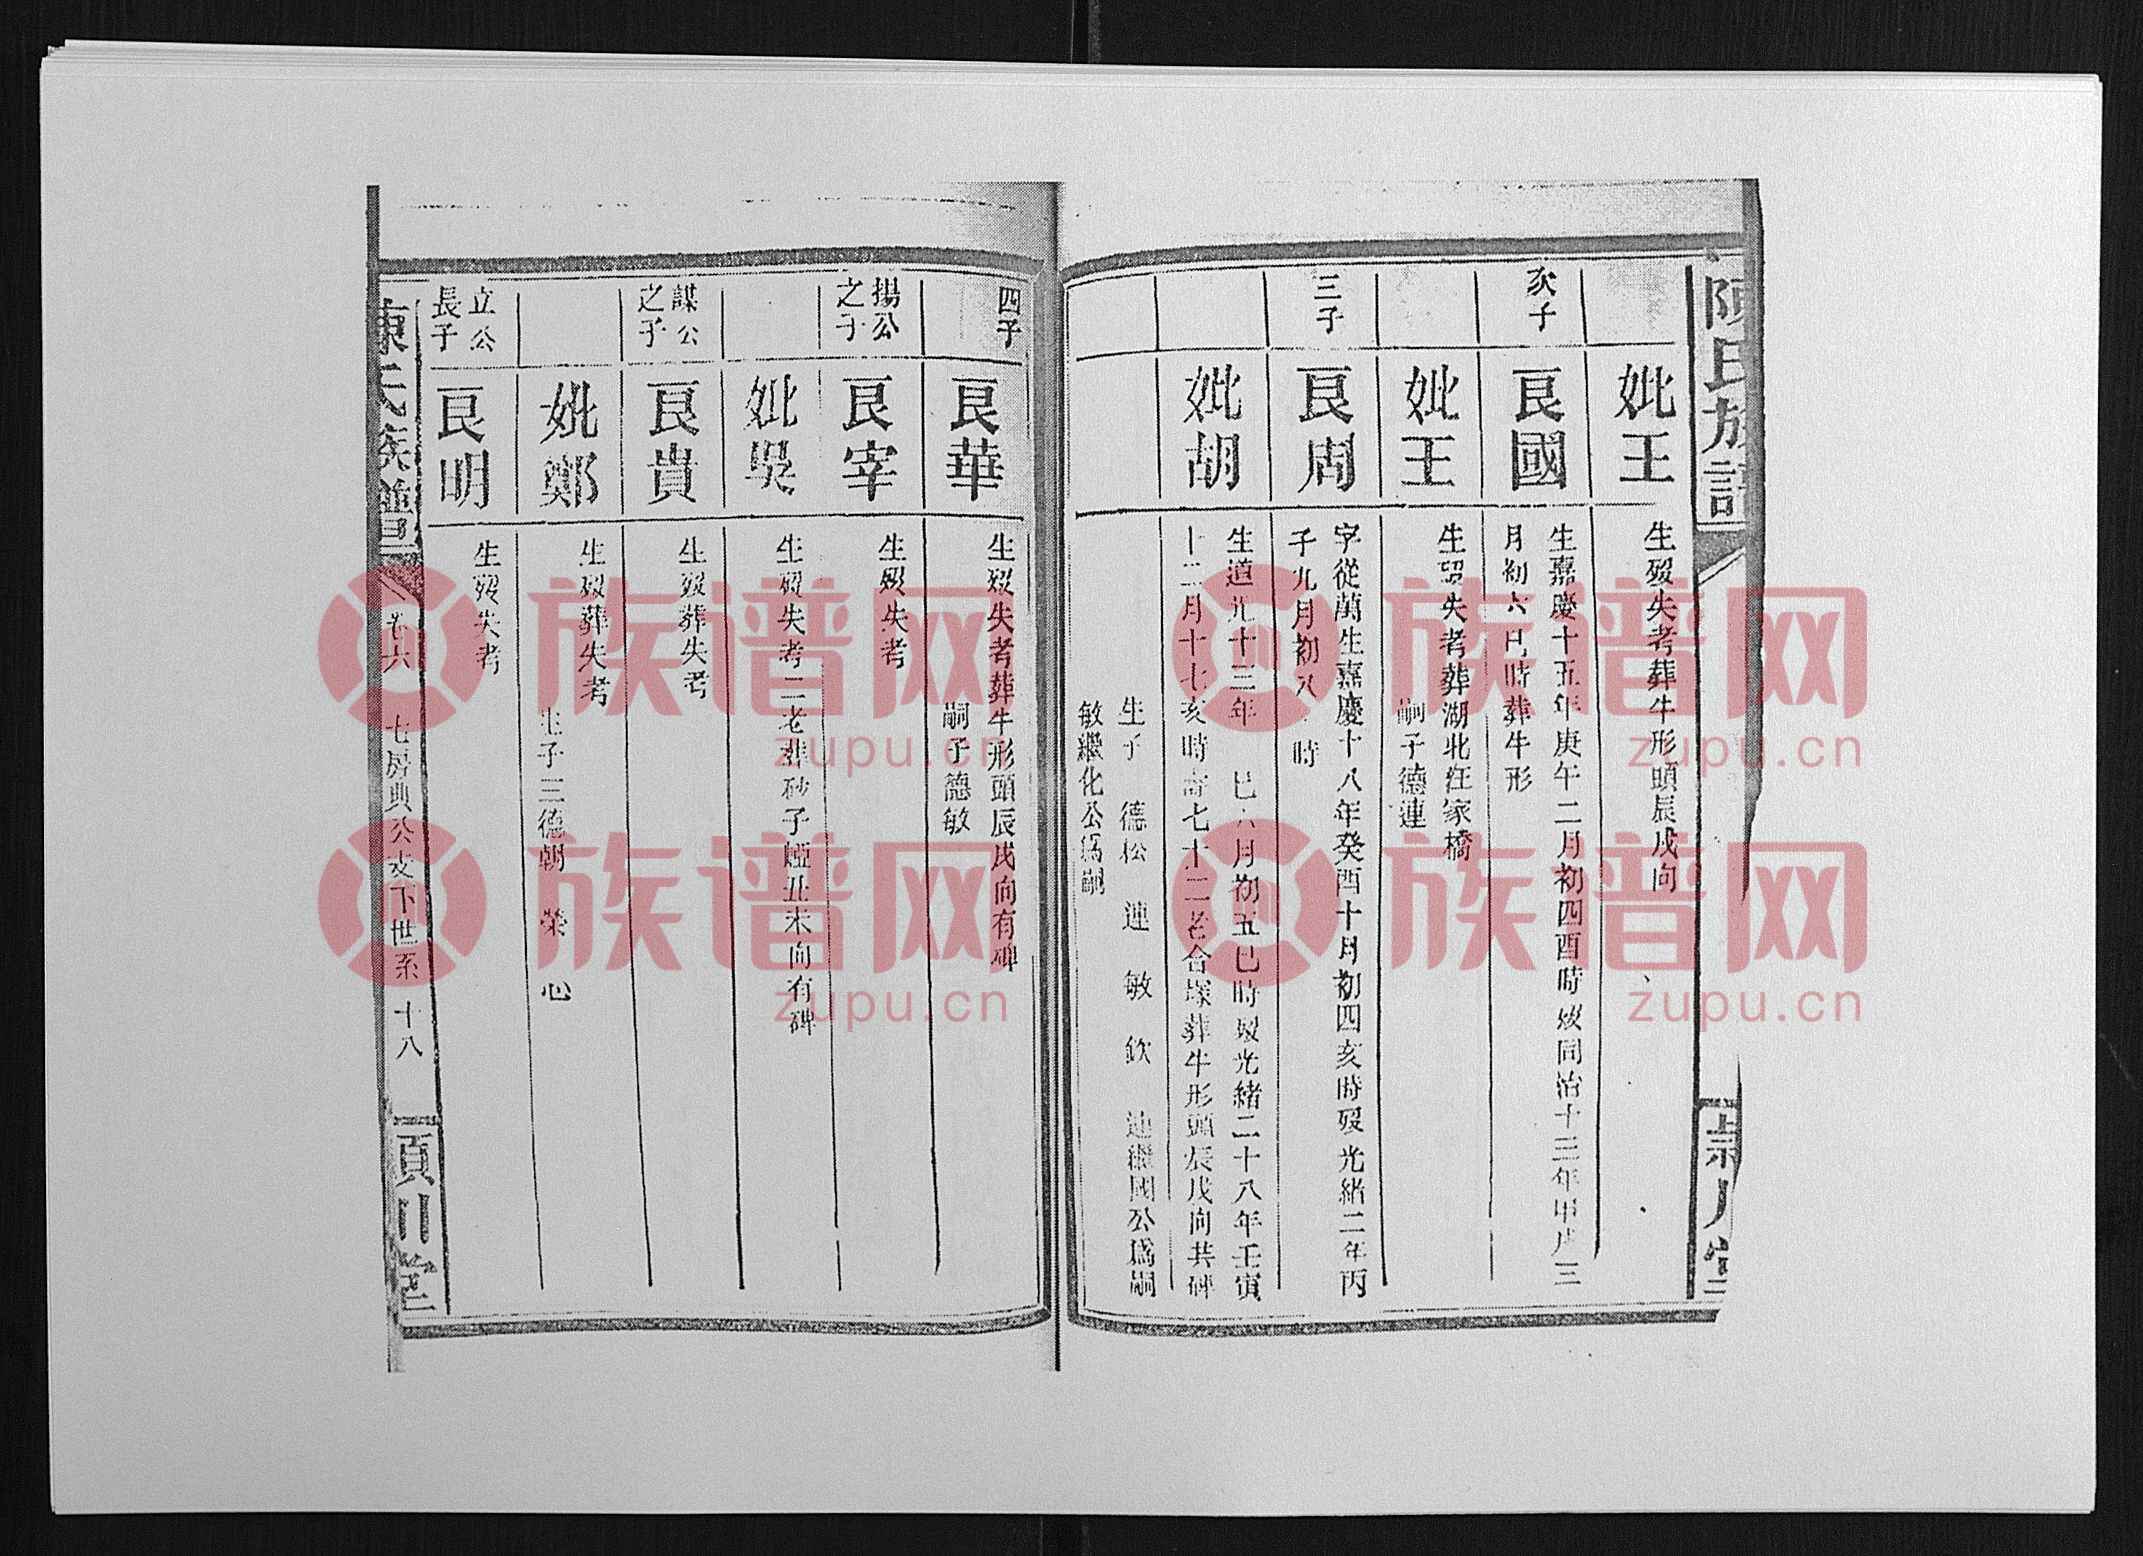 陳氏族譜
妣王
生殁失考葬牛形頭辰戌向
次子
良國
生嘉慶十五年庚午二月初四酉時殁同治十三年甲戌三
月初六巳時葬牛形
妣王
生殁失考葬湖北汪家橋
嗣子德連
三子
良周
字從萬生嘉慶十八年癸酉十月初四亥時殁光緒二年丙
子九月初八 時
妣胡
生道光十三年 巳六月初五巳時殁光緒二十八年壬寅
十二月十七亥時壽七十二老合塚葬牛形頭辰戌向共碑
生子 德松 連 敏 欽 連繼國公爲嗣
敏繼化公爲嗣
四子
良華
生殁失考葬牛形頭辰戌向有碑
嗣子德敏
揚公
之子
良宰
生殁失考
妣吳
生殁失考二老葬砂子啞丑未向有碑
謀公
之子
良貴
生殁葬失考
妣鄭
生殁葬失考
生子三德朝 榮 心
立公
長子
良明
生殁失考
陳氏族譜
卷六
七房典公支下世系
十八
穎川堂
族谱网
zupu.cn
族谱网
zupu.cn
族谱网
zupu.cn
族谱网
zupu.cn